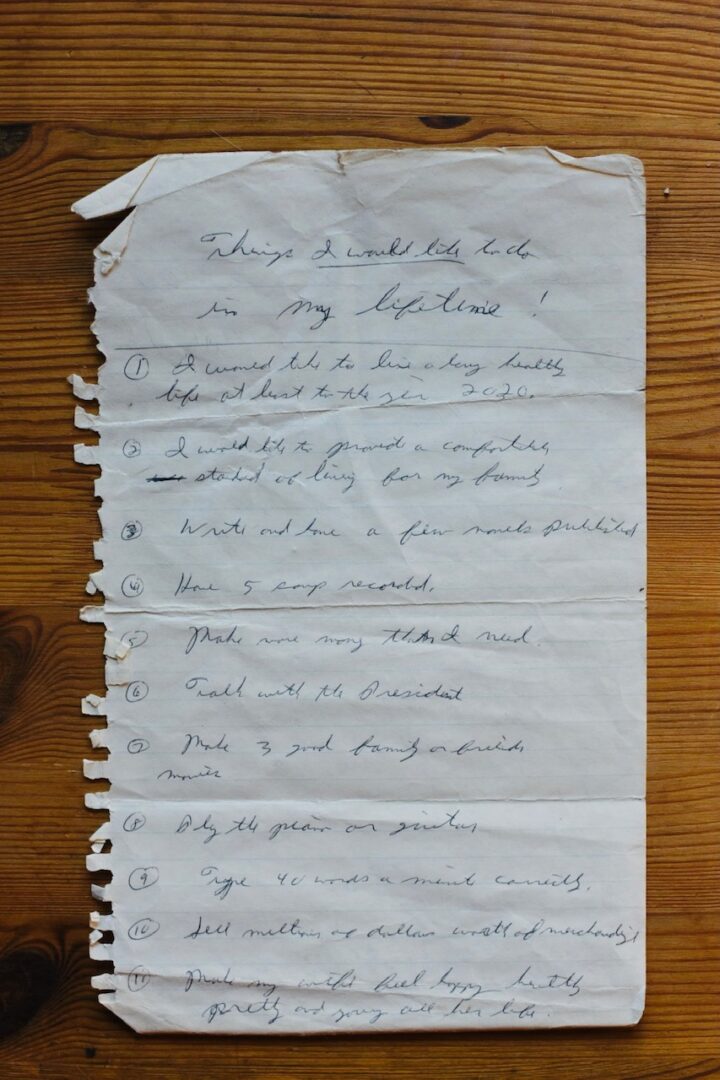 Things I would like to do
in my lifetime!
① I would like to live a long healthy
life at least to the year 2020.
② I would like to provide a comfortable
standard of living for my family
③ Write and have a few novels published
④ Have 5 songs recorded.
⑤ Make more money than I need.
⑥ Talk with the President
⑦ Make 3 good family or friends
movies
⑧ Play the piano or guitar
⑨ Type 40 words a minute correctly.
⑩ Sell millions of dollars worth of merchandise
⑪ Make my wife feel happy healthy
pretty and young all her life.